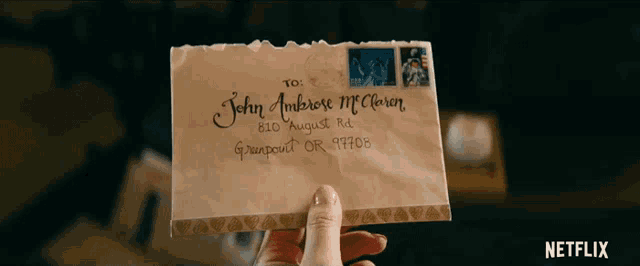 TO:
John Ambrose McClaren
810 August Rd
Greenpoint OR 97708
NETFLIX